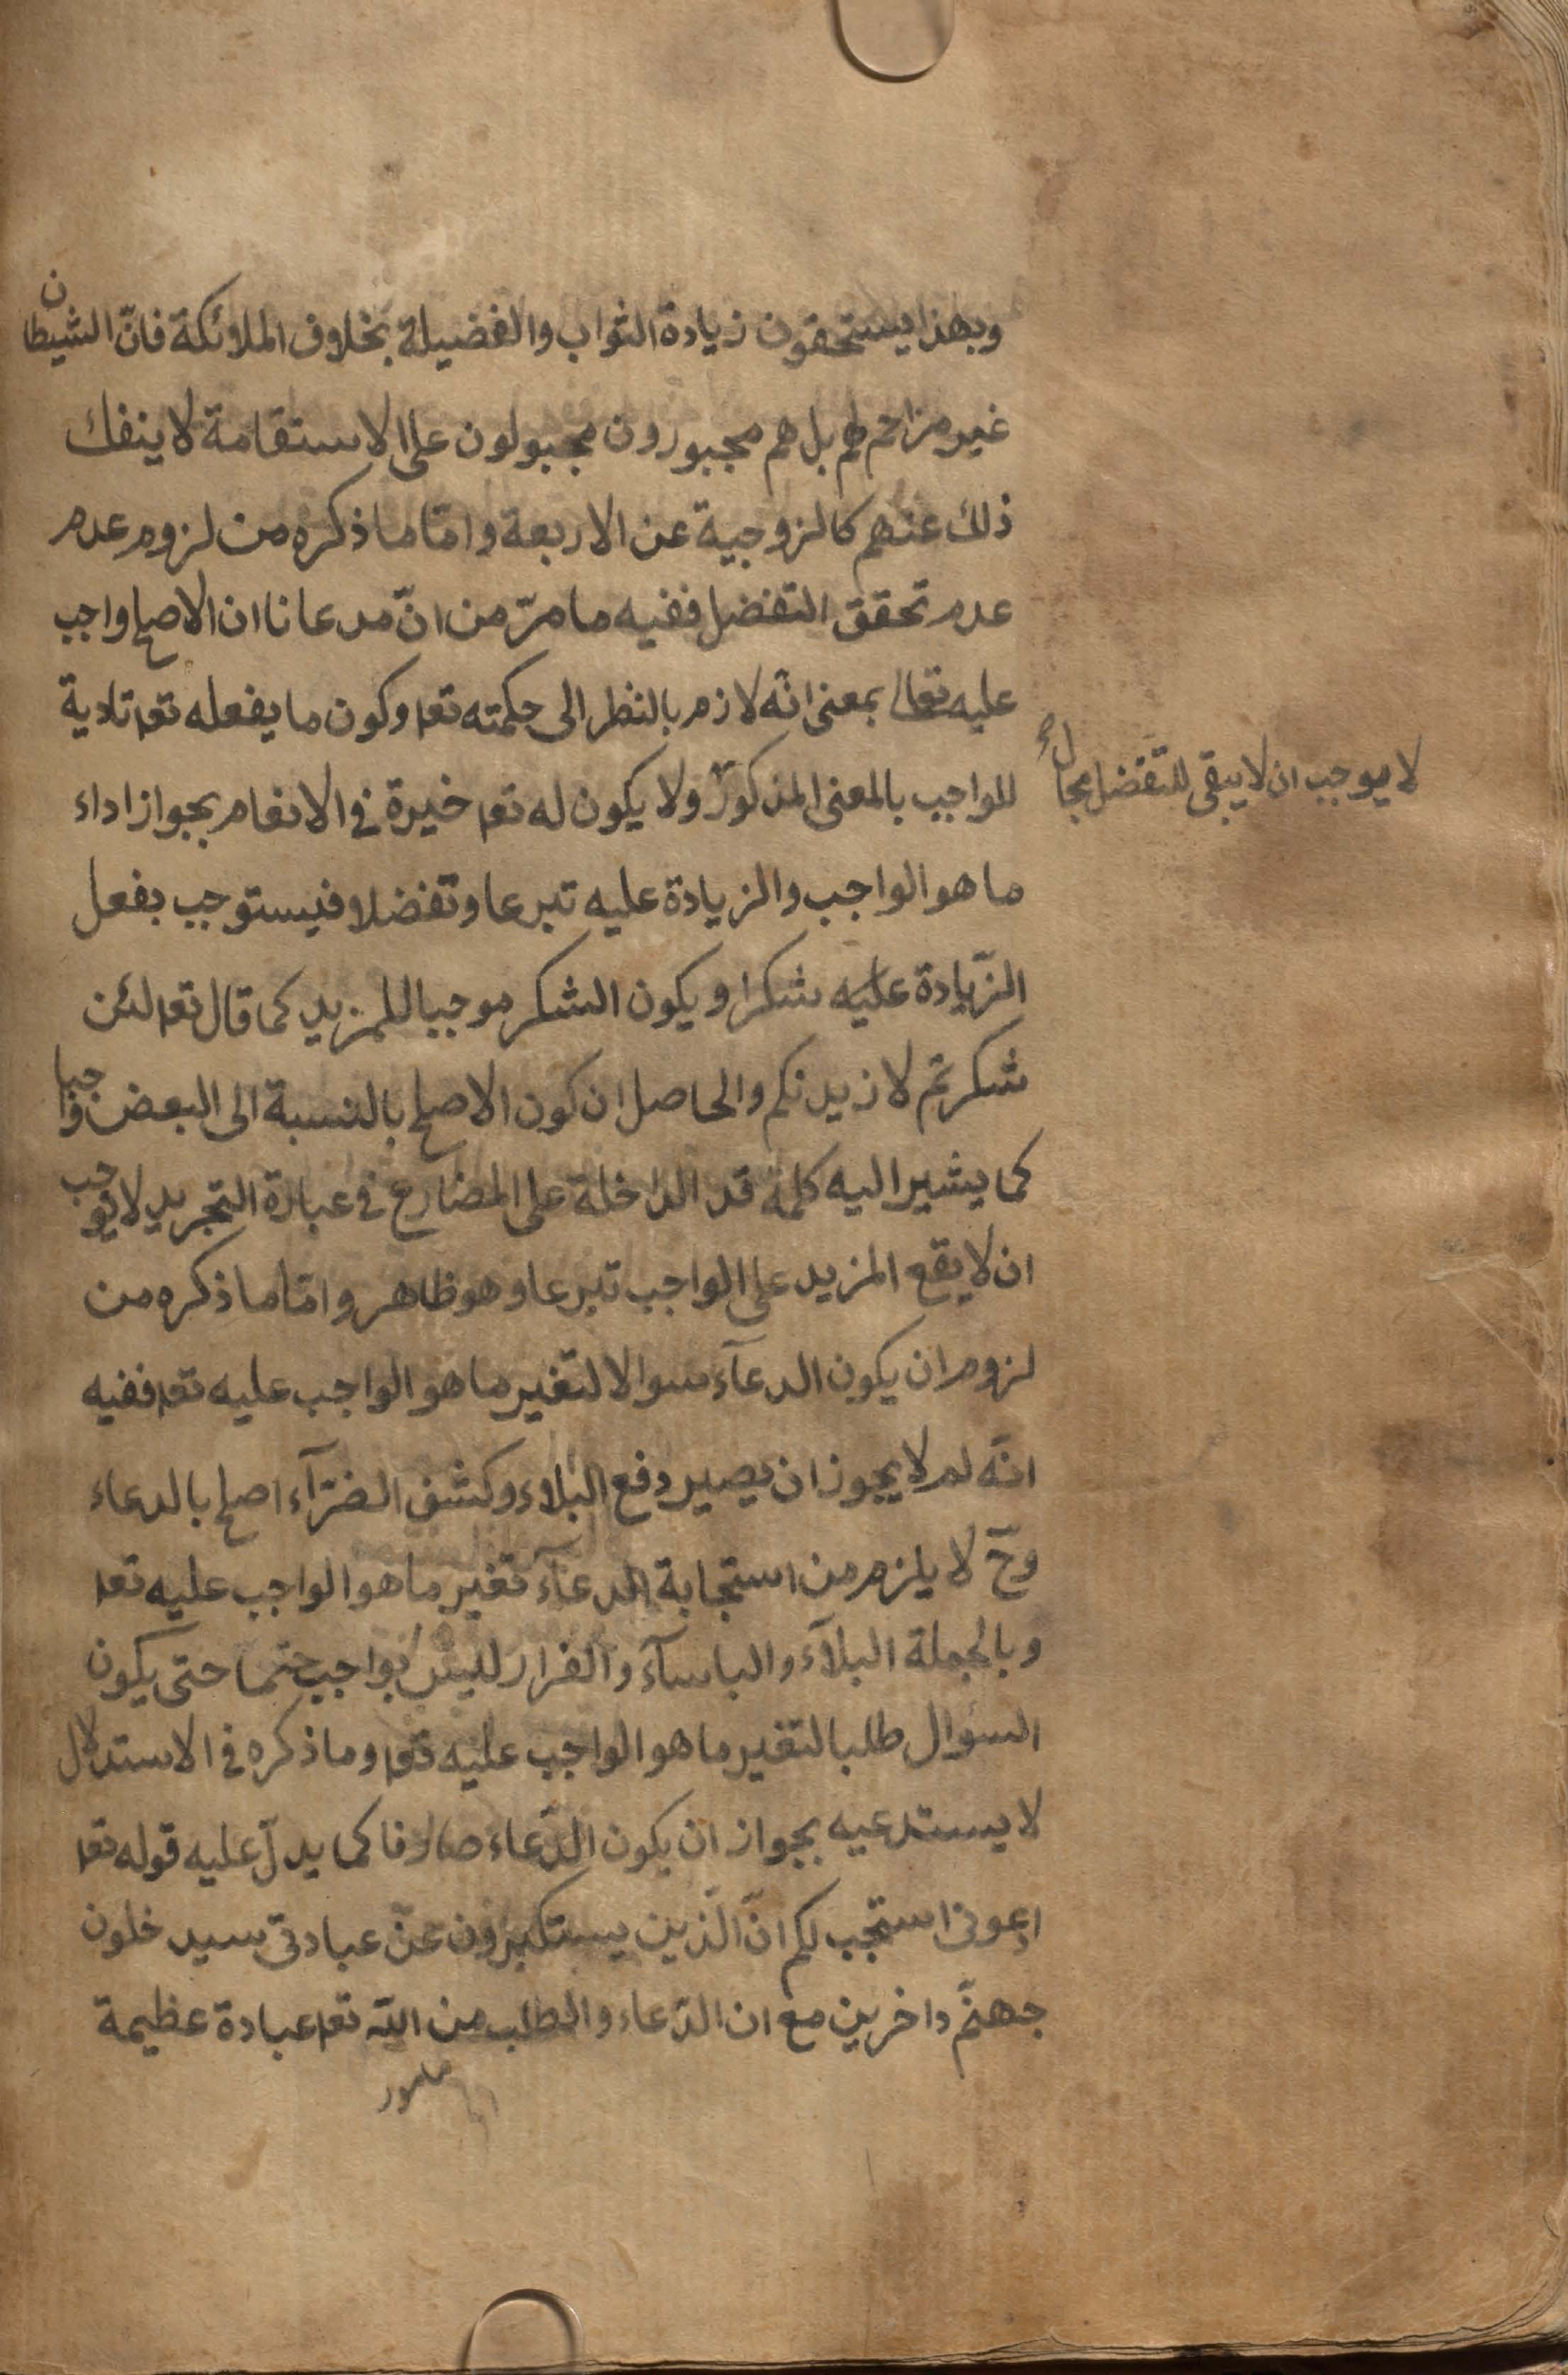 وبهذا يستحقون زيادة الثواب والفضيلة بخلاف الملائكة فانّ الشيطان
غير مزاحم لهم بل هم مجبورون مجبولون على الاستقامة لا ينفك
ذلك عنهم كالزوجية عن الاربعة وامّا ما ذكره من لزوم عدم
عدم تحقق التفضل ففيه ما مرّ من انّ مدعانا ان الاصلح واجب
عليه تعالى بمعنى انّه لازم بالنظر الى حكمته تعه وكون ما يفعله تعه تادية
للواجب بالمعنى المذكور ولا يكون له تعه خيرة في الانعام بجواز اداء
لا يوجب ان لا يبقى للتفضل مجال
ما هو الواجب والزيادة عليه تبرعا وتفضلا فيستوجب بفعل
الزّيادة عليه شكرا ويكون الشكر موجبا للمزيد كما قال تعه لئن
شكرتم لازيدنكم والحاصل ان كون الاصلح بالنسبة الى البعض واجبا
كما يشير اليه كلمة قد الداخلة على المضارع في عبارة التجريد لا يوجب
ان لا يقع المزيد على الواجب تبرعا وهو ظاهر وامّا ما ذكره من
لزوم ان يكون الدعآء سوالا لتغير ما هو الواجب عليه تعه ففيه
انّه لم لا يجوز ان يصير دفع البلاء وكشف الضرّآء اصلح بالدعاء
وحّ لا يلزم من استجابة الدعآء تغير ما هو الواجب عليه تعه
وبالجملة البلآء والباسآء والضرار ليس بواجب حتما حتى يكون
السؤال طلبا لتغير ما هو الواجب عليه تعه وما ذكره في الاستدلال
لا يستدعيه بجواز ان يكون الدّعاء صارفا كما يدلّ عليه قوله تعه
ادعوني استجب لكم انّ الّذين يستكبرون عن عبادتي سيدخلون
جهنّم داخرين مع ان الدّعاء والطلب من اللّه تعه عبادة عظيمة